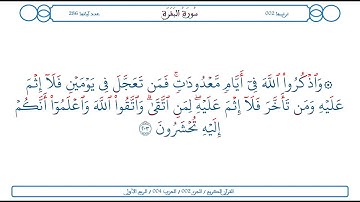 ترتيبها 002
سُورَةُ البَقَرَةِ
عدد آياتها 286
۞ وَٱذْكُرُوا۟ ٱللَّهَ فِىٓ أَيَّامٍ مَّعْدُودَٰتٍ ۚ فَمَن تَعَجَّلَ فِى يَوْمَيْنِ فَلَآ إِثْمَ
عَلَيْهِ وَمَن تَأَخَّرَ فَلَآ إِثْمَ عَلَيْهِ ۚ لِمَنِ ٱتَّقَىٰ ۗ وَٱتَّقُوا۟ ٱللَّهَ وَٱعْلَمُوٓا۟ أَنَّكُمْ
إِلَيْهِ تُحْشَرُونَ ٢٠٣
القرآن الكريم / الجزء 002 / الحزب 004 / الربع الأول